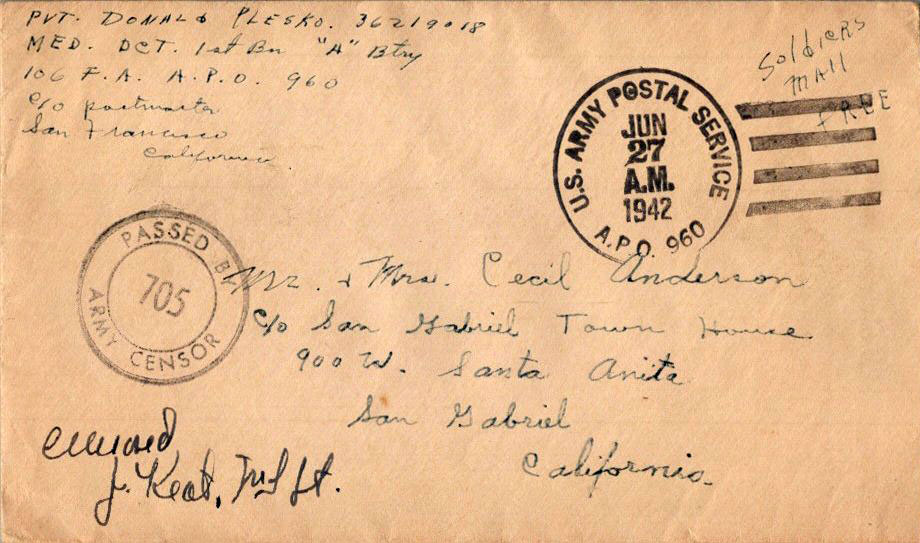 PVT. DONALD PLESKO. 36219018
MED. DCT. 1st Bn "A" Btry
106 F.A. A.P.O. 960
c/o postmaster
San Francisco
California
Soldiers
Mail
FREE
U.S. ARMY POSTAL SERVICE
JUN
27
A.M.
1942
A.P.O. 960
PASSED BY
705
ARMY CENSOR
Mr. & Mrs. Cecil Anderson
c/o San Gabriel Town House
900 W. Santa Anita
San Gabriel
California
censored
J. Lt.